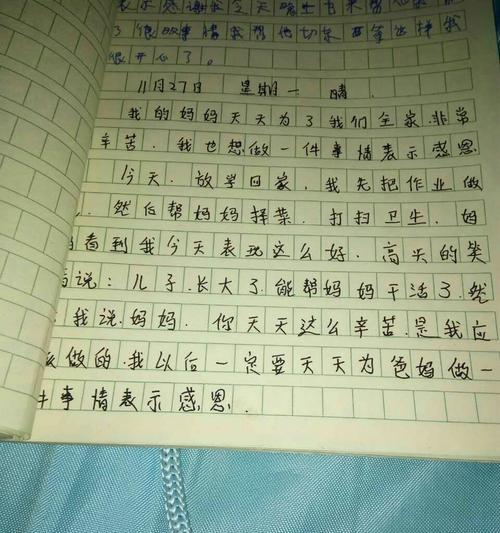 表示感谢我今天
了很多事情我帮他切菜 等这样我
很开心了。
11月27日 星期一 晴
我的妈妈天天为了我们全家.非常
辛苦.我也想做一件事情表示感恩
今天.放学回家,我先把作业做
.然后帮妈妈择菜.打扫卫生.妈
看到我今天表现这么好.高兴的笑
说:儿子.长大了.能帮妈妈干活了.然
我说.妈妈.你天天这么辛苦.是我应
么做的.我以后一定要天天为爸妈做一
件事情表示感恩.